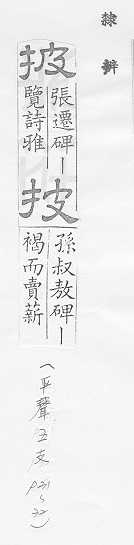 隸辨
披
張遷碑ー
覽詩雅
披
孫叔敖碑ー
褐而賣薪
(平聲五支
P31~32)